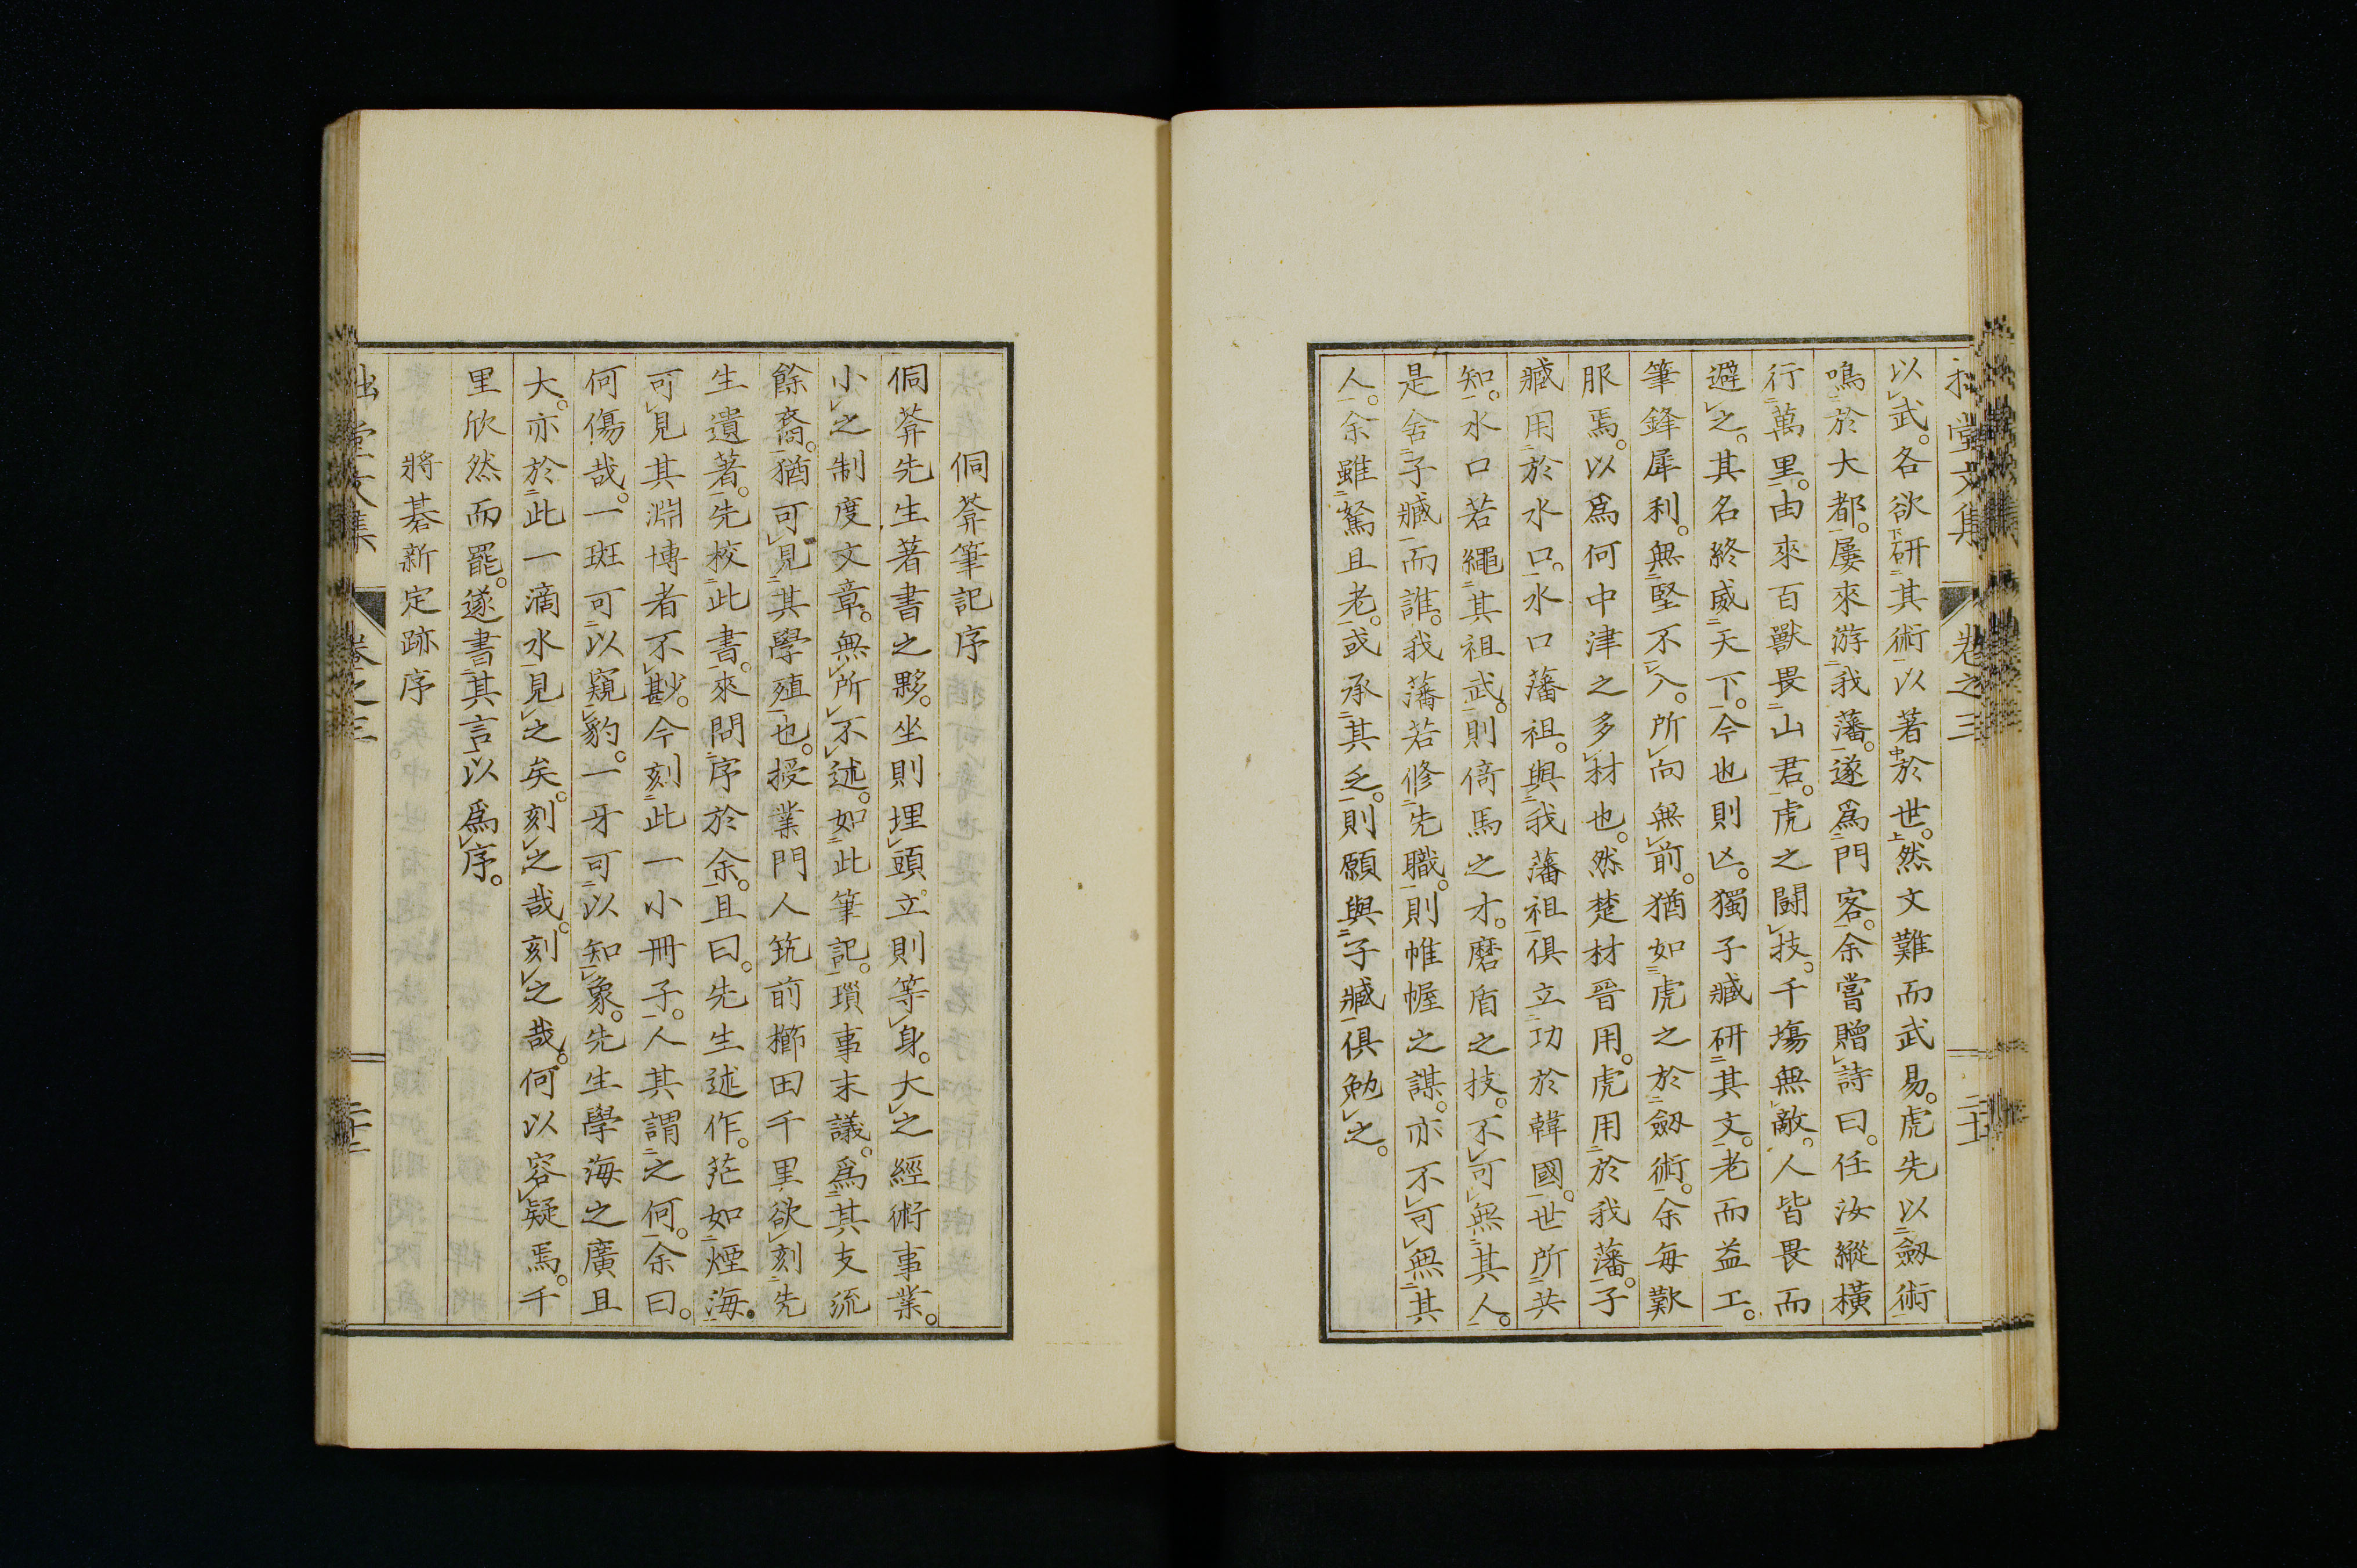 以武。各欲研其術以著於世。然文難而武易。虎先以劒術
鳴於大都。屢來游我藩。遂爲門客。余嘗贈詩曰。任汝縱橫
行萬里。由來百獸畏山君。虎之鬪技。千塲無敵。人皆畏而
避之。其名終威天下。今也則亡。獨子臧研其文。老而益工。
筆鋒犀利。無堅不入。所向無前。猶如虎之於劒術。余每歎
服焉。以爲何中津之多材也。然楚材晉用。虎用於我藩。子
臧用於水口。水口藩祖。與我藩祖俱立功於韓國。世所共
知。水口若繩其祖武。則倚馬之才。磨盾之技。不可無其人。
是舍子臧而誰。我藩若修先職。則帷幄之謀。亦不可無其
人。余雖駑且老。或承其乏。則願與子臧俱勉之。
侗菴筆記序
侗菴先生著書之夥。坐則埋頭。立則等身。大之經術事業。
小之制度文章。無所不述。如此筆記。瑣事末議。爲其支流
餘裔。猶可見其學殖也。授業門人筑前櫛田千里欲刻先
生遺著。先校此書。來問序於余。且曰。先生述作。茫如煙海。
可見其淵博者不尠。今刻此一小冊子。人其謂之何。余曰。
何傷哉。一斑可以窺豹。一牙可以知象。先生學海之廣且
大。亦於此一滴水見之矣。刻之哉。刻之哉。何以容疑焉。千
里欣然而罷。遂書其言以爲序。
將碁新定跡序
堂文集 卷之三